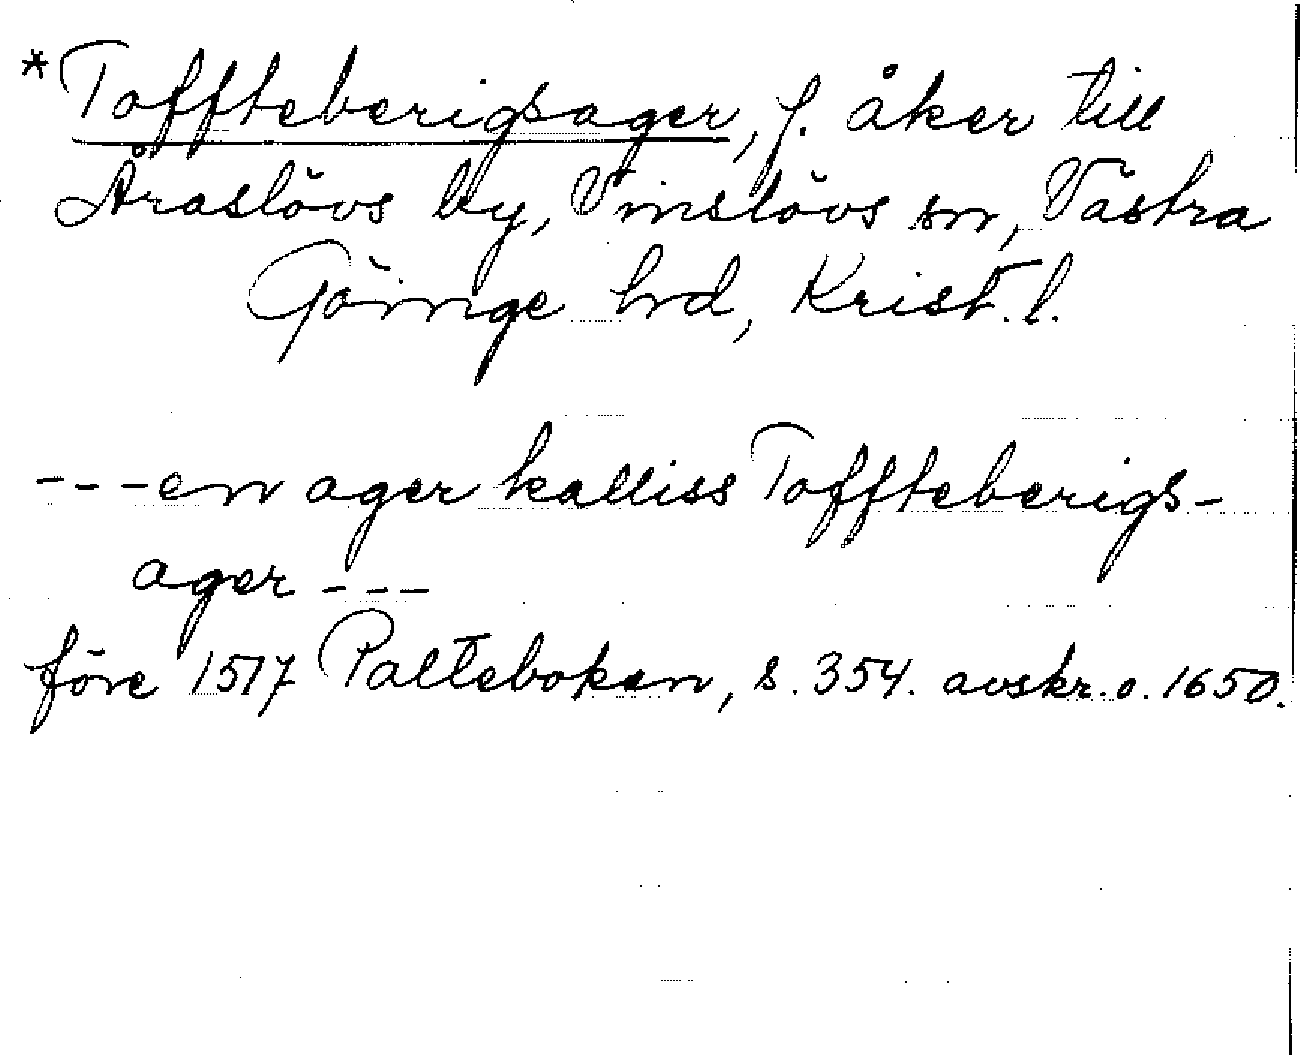 *Toffteberigsager, f. åker till
Åraslövs by, Vinslövs sn, Västra
Göinge hrd, Krist. l.
---en ager kalliss Toffteberigs-
ager ---
före 1517 Paltebokan, s. 354. avskr. o. 1650.